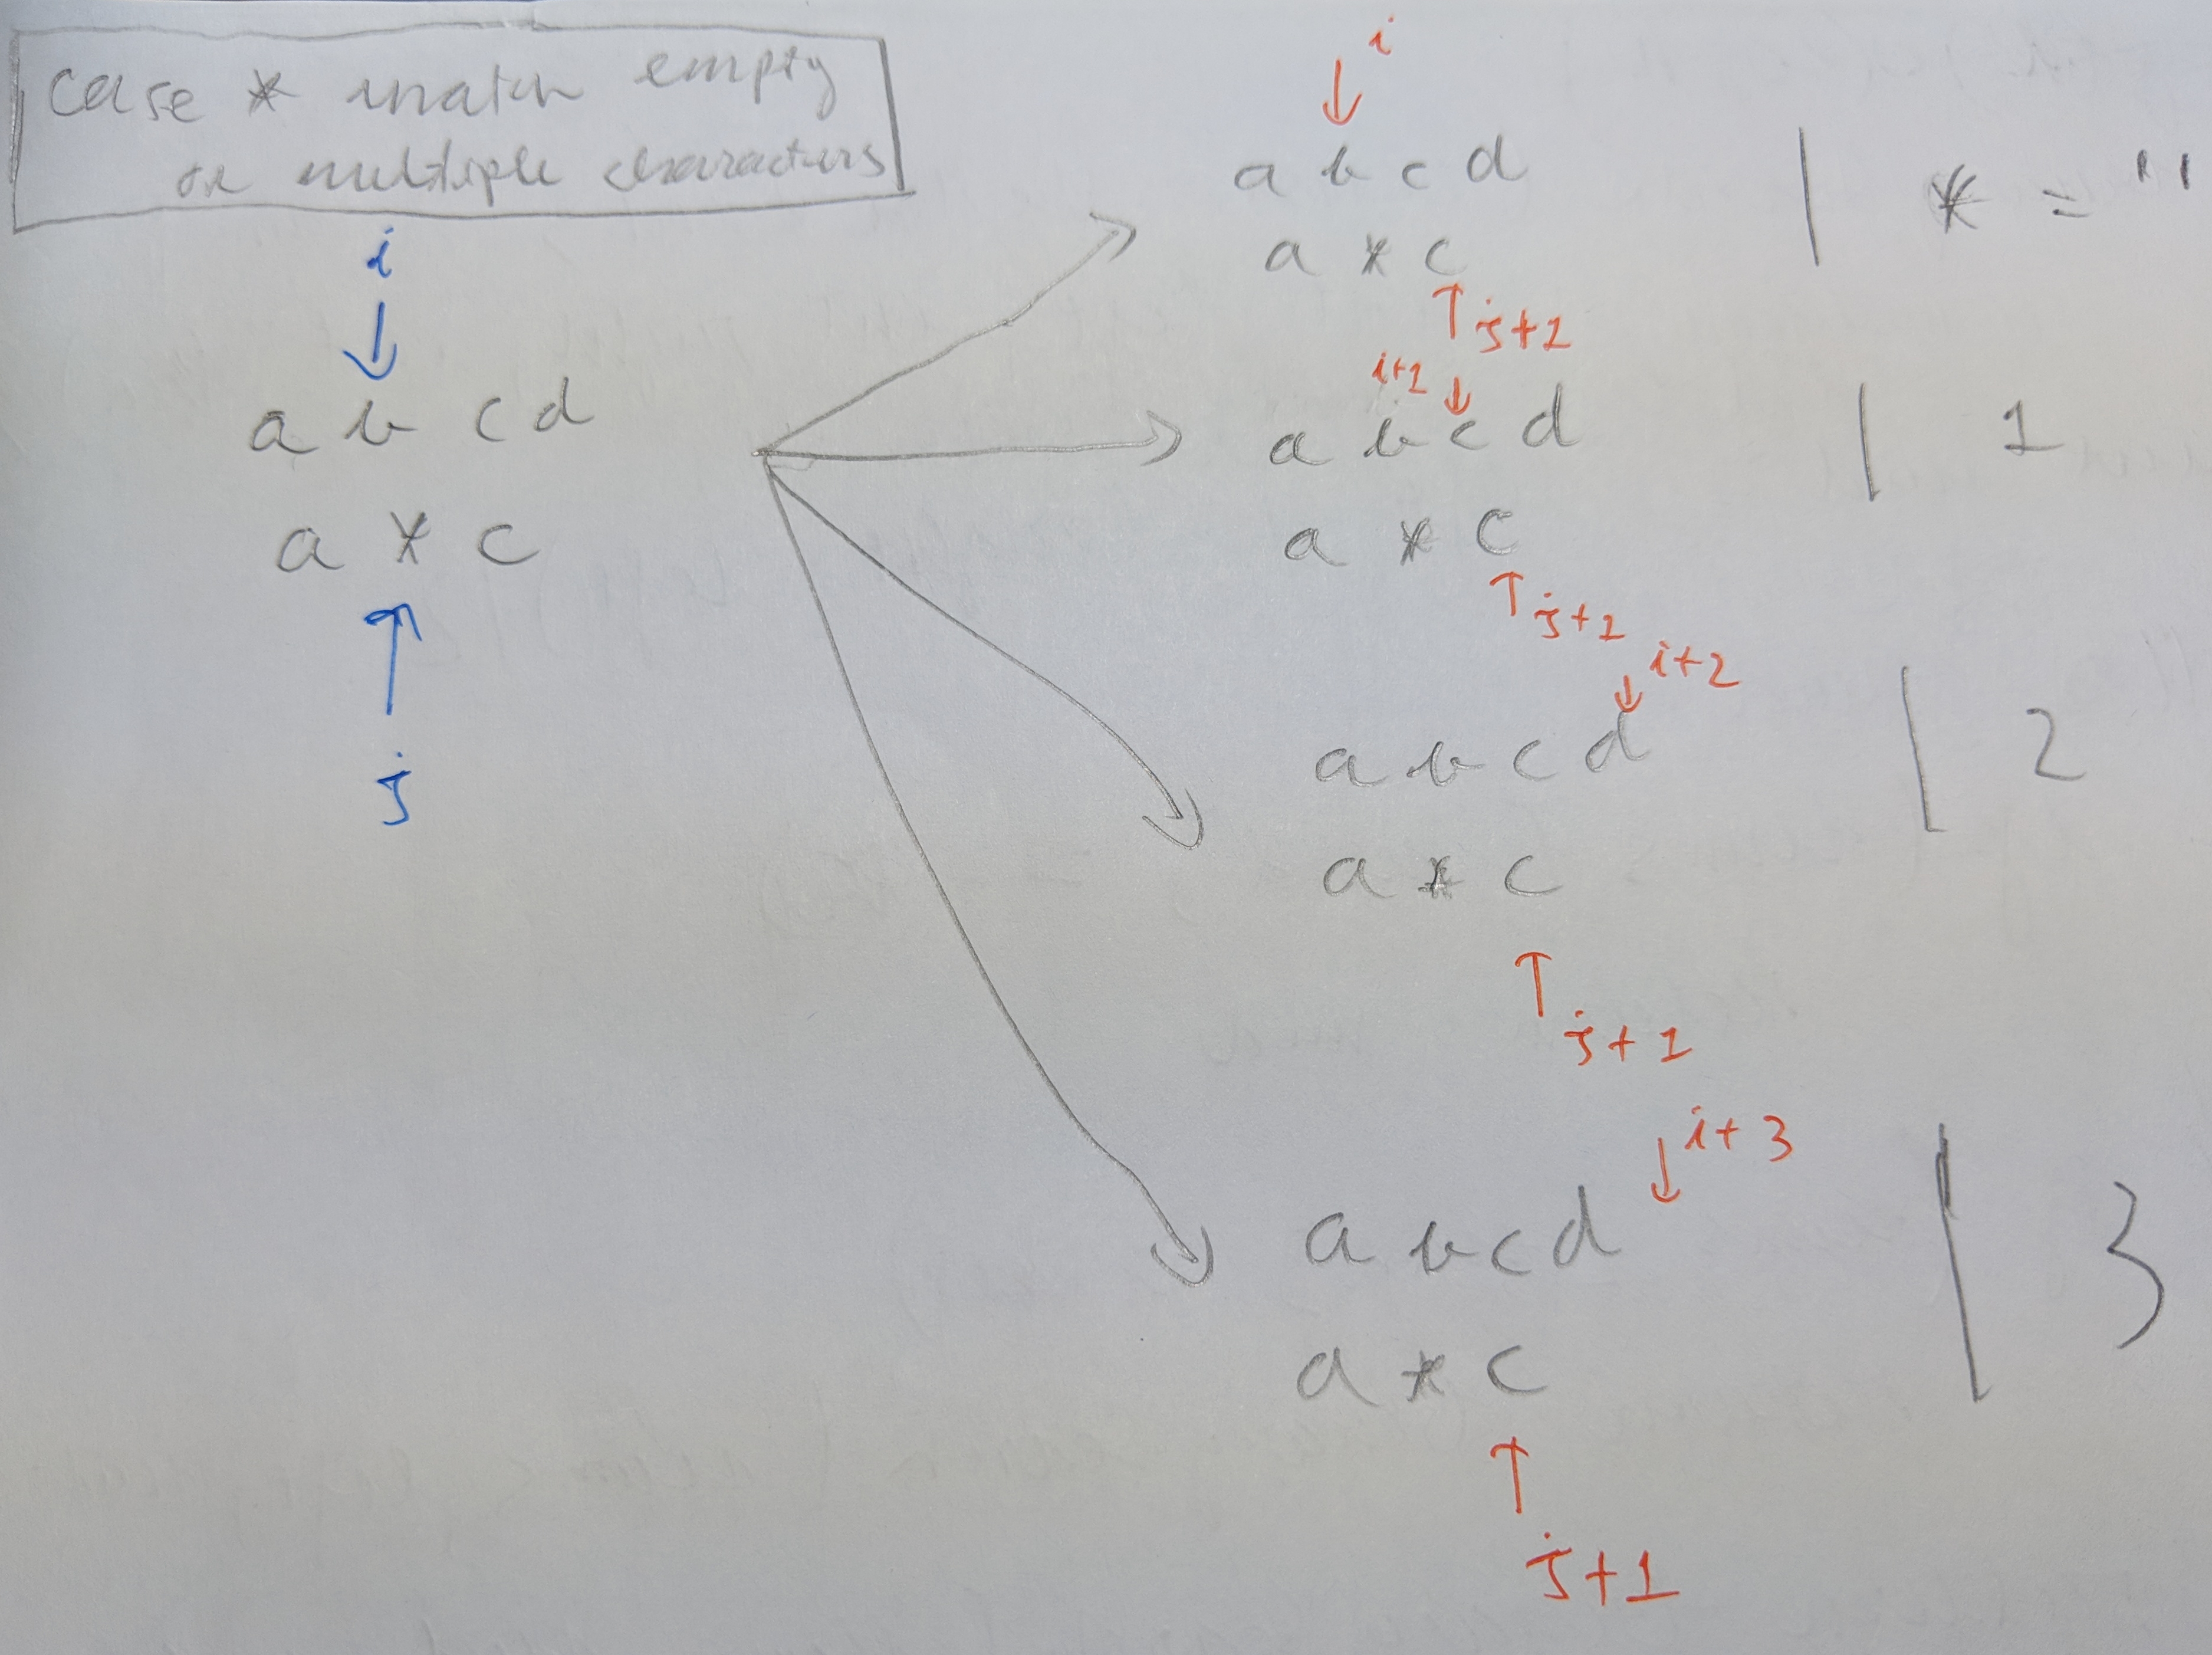 case * match empty
or multiple characters
i
a b c d
a * c
j
i
a b c d
a * c
j+1
| * = ''
i+1
a b c d
a * c
j+1
| 1
i+2
a b c d
a * c
j+1
| 2
i+3
a b c d
a * c
j+1
| 3